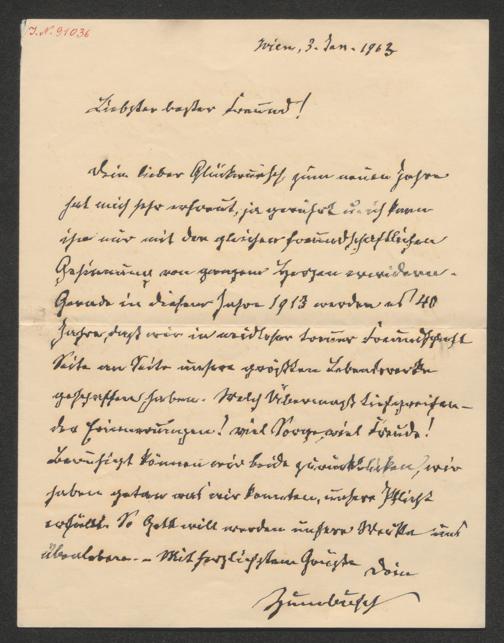 J.N. 91036
Wien, 3. Jan. 1913
Liebster bester Freund!
Dein lieber Glückwunsch zum neuen Jahre
hat mich sehr erfreut, ja gerührt u. ich kann
ihn nur mit der gleichen freundschaftlichen
Gesinnung von ganzem Herzen erwidern.
Gerade in diesem Jahre 1913 werden es 40
Jahre, daß wir in neidloser treuer Freundschaft
Seite an Seite unsere größten Lebenswerke
geschaffen haben. Welch Übermaß tiefgreifen-
der Erinnerungen! viel Sorge, viel Freude!
Beruhigt können wir beide zurückblicken, wir
haben getan was wir konnten, unsere Pflicht
erfüllt. So Gott will werden unsere Werke uns
überleben. – Mit herzlichstem Gruße
Dein
Zumbusch